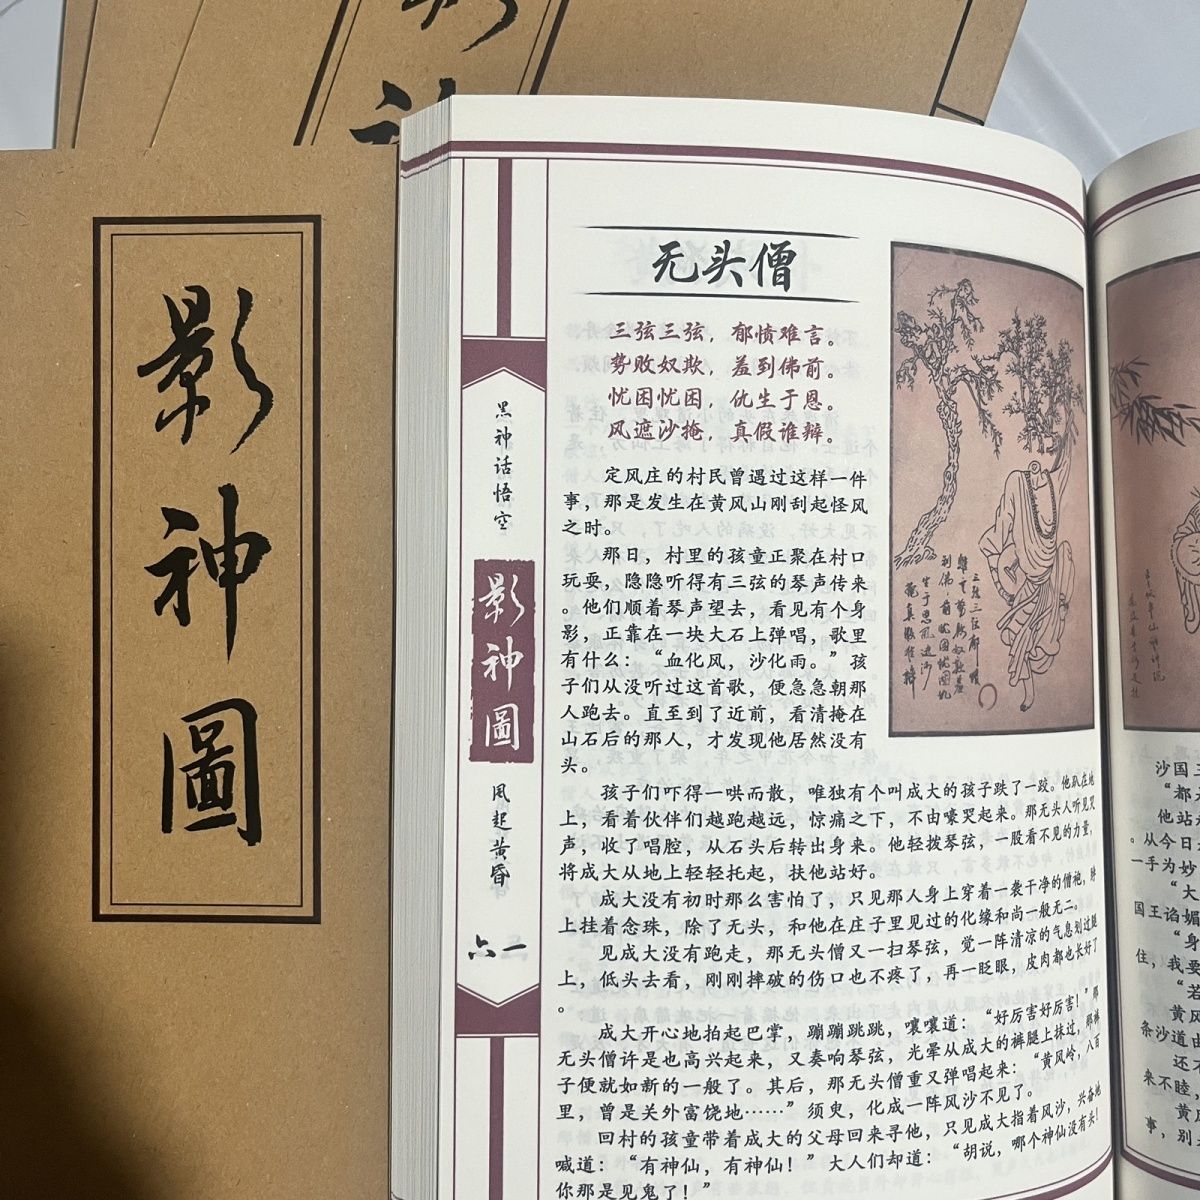 影神圖
黑神话悟空
影神圖
风起黄昏
六一
无头僧
三弦三弦，郁愤难言。
势败奴欺，羞到佛前。
忧困忧困，仇生于恩。
风遮沙掩，真假谁辩。
定风庄的村民曾遇过这样一件
事，那是发生在黄风山刚刮起怪风
之时。
那日，村里的孩童正聚在村口
玩耍，隐隐听得有三弦的琴声传来
。他们顺着琴声望去，看见有个身
影，正靠在一块大石上弹唱，歌里
有什么：“血化风，沙化雨。”孩
子们从没听过这首歌，便急急朝那
人跑去。直至到了近前，看清掩在
山石后的那人，才发现他居然没有
头。
孩子们吓得一哄而散，唯独有个叫成大的孩子跌了一跤。他趴在地
上，看着伙伴们越跑越远，惊痛之下，不由嚎哭起来。那无头人听见哭
声，收了唱腔，从石头后转出身来。他轻拨琴弦，一股看不见的力量，
将成大从地上轻轻托起，扶他站好。
成大没有初时那么害怕了，只见那人身上穿着一袭干净的僧袍，脖
上挂着念珠，除了无头，和他在庄子里见过的化缘和尚一般无二。
见成大没有跑走，那无头僧又一扫琴弦，觉一阵清凉的气息划过腿
上，低头去看，刚刚摔破的伤口也不疼了，再一眨眼，皮肉都也长好了
。
成大开心地拍起巴掌，蹦蹦跳跳，嚷嚷道：“好厉害好厉害！”那
无头僧许是也高兴起来，又奏响琴弦，光晕从成大的裤腿上抹过，那裤
子便就如新的一般了。其后，那无头僧重又弹唱起来：“黄风岭，八百
里，曾是关外富饶地……”须臾，化成一阵风沙不见了。
回村的孩童带着成大的父母回来寻他，只见成大指着风沙，兴奋地
喊道：“有神仙，有神仙！”大人们却道：“胡说，哪个神仙没有头！
你那是见鬼了！”
沙国王
“都大
他站
。从今日
一手为妙
“大
国王谄媚
“身
住，我要
“若
黄风
条沙道由
还不
来不睦，
黄
事，别